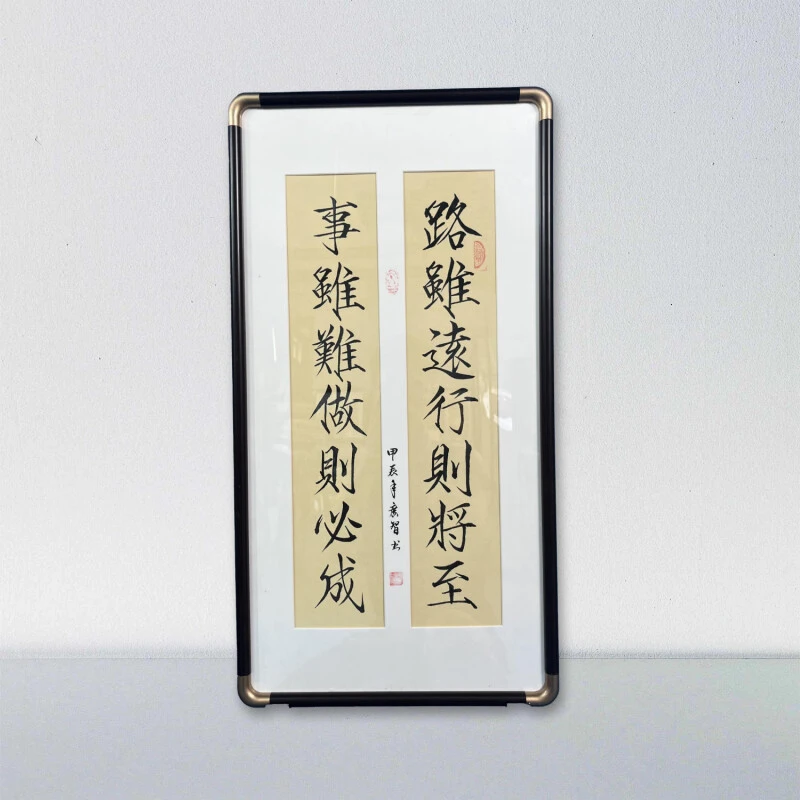 路雖遠行則將至
事雖難做則必成
甲辰年廣智书